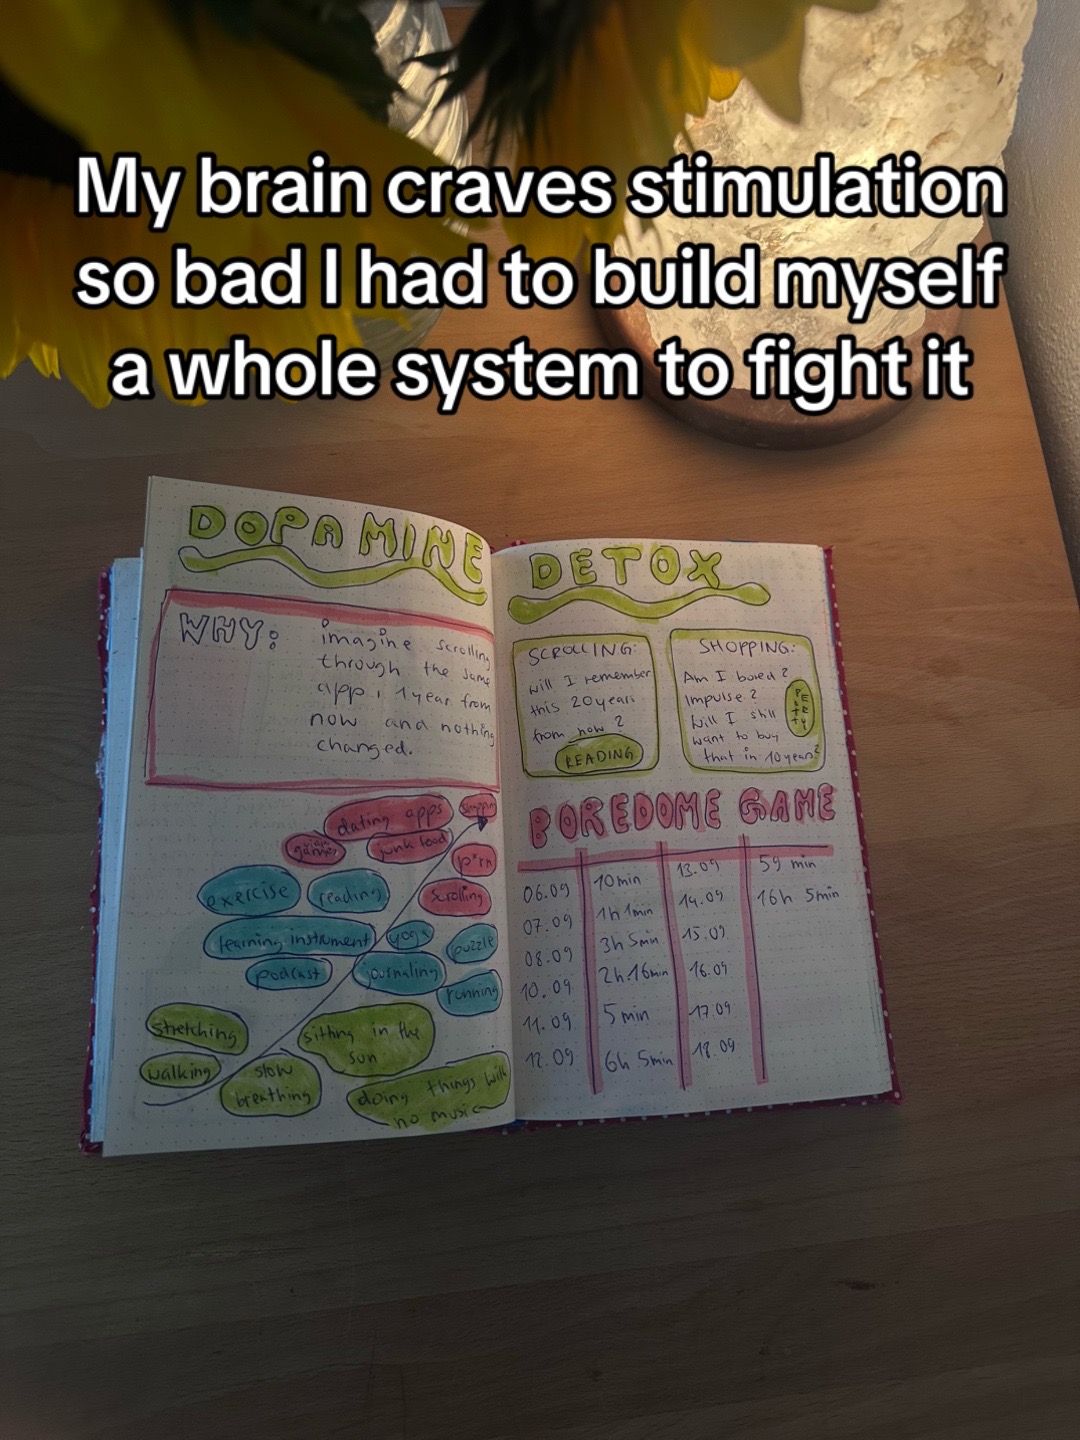 My brain craves stimulation
so bad I had to build myself
a whole system to fight it
DOPAMINE
WHY:
imagine scrolling
through the same
app, 1 year from
now and nothing
changed.
dating apps
shopping
games
junk food
p*rn
exercise
reading
scrolling
learning instrument
yoga
puzzle
podcast
journaling
running
stretching
sitting in the
sun
walking
slow
breathing
doing things with
no music
DETOX
SCROLLING:
will I remember
this 20 years
from now?
READING
SHOPPING:
Am I bored?
Impulse?
Will I still
want to buy
that in 10 years?
BOREDOME GAME
06.09 10min
07.09 1h 1min
08.09 3h 5min
10.09 2h 16min
11.09 5 min
12.09 6h 5min
13.09 59 min
14.09 16h 5min
15.09
16.09
17.09
18.09